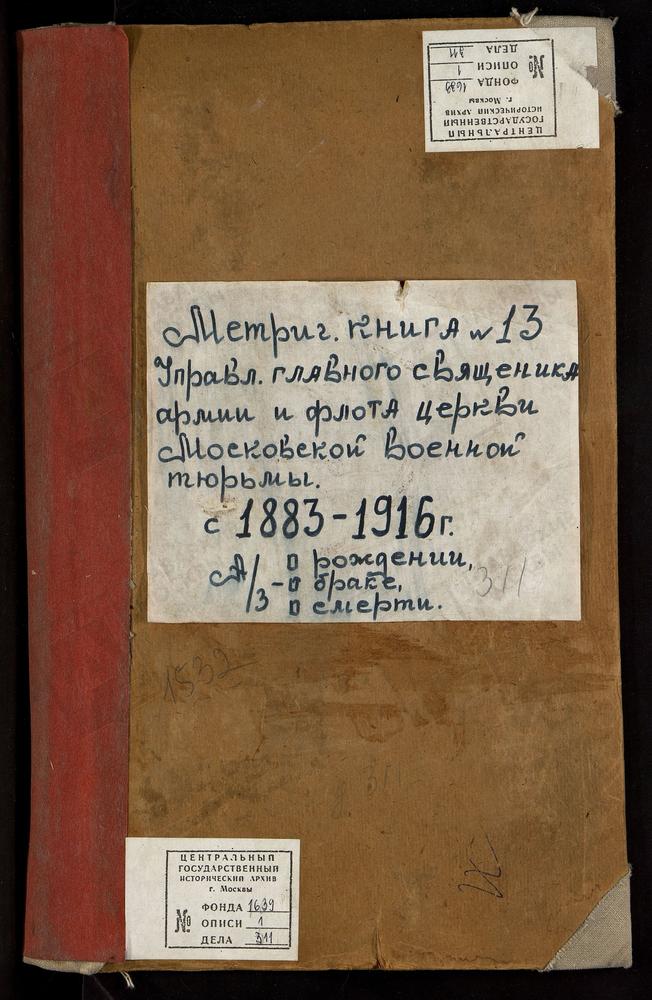 ЦЕНТРАЛЬНЫЙ
ГОСУДАРСТВЕННЫЙ
ИСТОРИЧЕСКИЙ АРХИВ
г. Москвы
№
ФОНДА 1639
ОПИСИ 1
ДЕЛА 311
Метрич. книга № 13
Управл. главного священика
армии и флота церкви
Московской военной
тюрьмы.
с 1883-1916 г.
о рождении,
А/з - о браке,
о смерти.
311
1532
311
ЦЕНТРАЛЬНЫЙ
ГОСУДАРСТВЕННЫЙ
ИСТОРИЧЕСКИЙ АРХИВ
г. Москвы
№
ФОНДА 1639
ОПИСИ 1
ДЕЛА 311